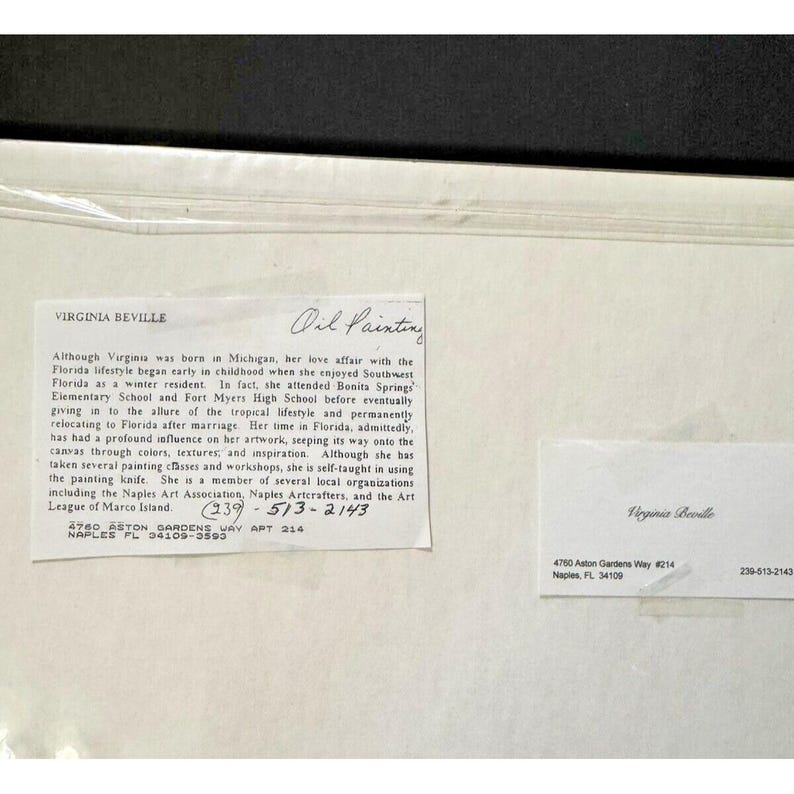 VIRGINIA BEVILLE
Oil Painting
Although Virginia was born in Michigan, her love affair with the
Florida lifestyle began early in childhood when she enjoyed Southwest
Florida as a winter resident. In fact, she attended Bonita Springs
Elementary School and Fort Myers High School before eventually
giving in to the allure of the tropical lifestyle and permanently
relocating to Florida after marriage. Her time in Florida, admittedly,
has had a profound influence on her artwork, seeping its way onto the
canvas through colors, textures, and inspiration. Although she has
taken several painting classes and workshops, she is self-taught in using
the painting knife. She is a member of several local organizations
including the Naples Art Association, Naples Artcrafters, and the Art
League of Marco Island. (239) - 513-2143
4760 ASTON GARDENS WAY APT 214
NAPLES FL 34109-3593
Virginia Beville
4760 Aston Gardens Way #214
Naples, FL 34109
239-513-2143